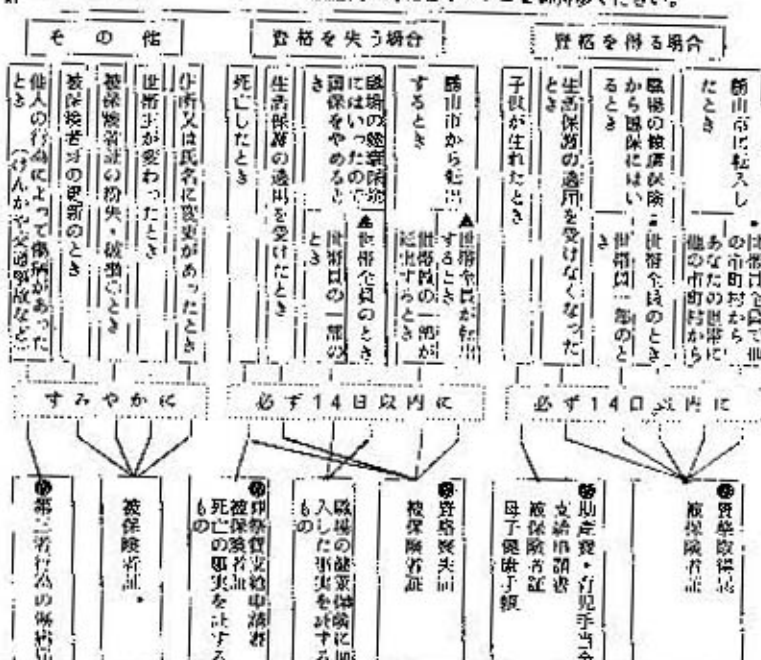 資格を得る場合
勝山市に転入し
たとき
世帯員全員で他
の市町村から
あなたの世帯に
他の市町村から
職場の健康保険
から国保にはい
るとき
世帯全員のとき
世帯員一部のと
き
生活保護の適用を受けなくなった
とき
子供が生れたとき
必ず14日以内に
資格取得届
被保険者証
助産費・育児手当金
支給申請書
被保険者証
母子健康手帳
資格を失う場合
勝山市から転出
するとき
▲世帯全員が転出
するとき
世帯員の一部が
転出するとき
職場の健康保険
にはいったので
国保をやめると
き
▲世帯全員のとき
世帯員の一部の
とき
生活保護の適用を受けたとき
死亡したとき
必ず14日以内に
資格喪失届
被保険者証
職場の健康保険に加
入した事実を証する
もの
葬祭費支給申請書
被保険者証
死亡の事実を証する
もの
その他
住所又は氏名に変更があったとき
世帯主が変わったとき
被保険者証の紛失・破損のとき
被保険者証の更新のとき
他人の行為によって傷病があった
とき (けんかや交通事故など)
すみやかに
被保険者証
第三者行為の傷病届